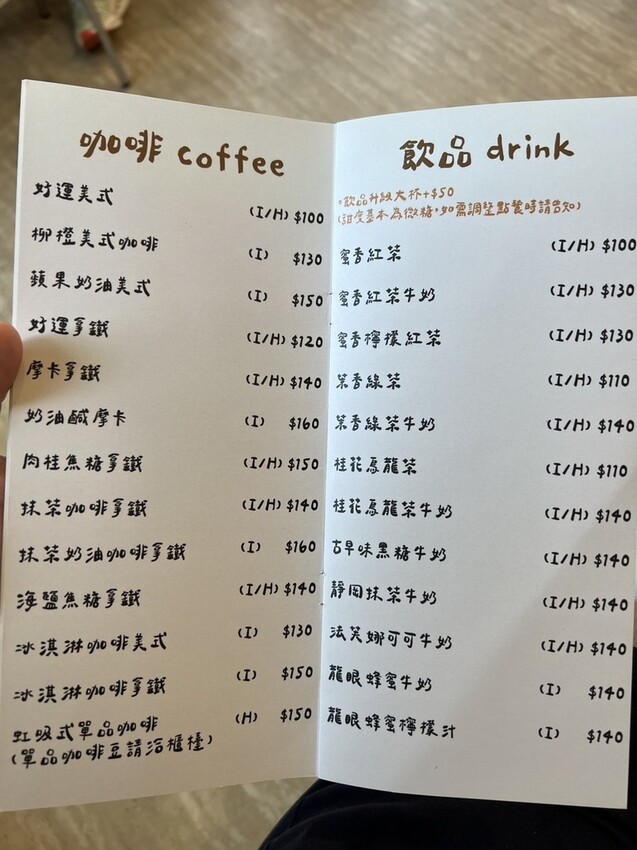 咖啡 coffee
好運美式 (I/H) $100
柳橙美式咖啡 (I) $130
蘋果奶油美式 (I) $150
好運拿鐵 (I/H) $120
摩卡拿鐵 (I/H) $140
奶油鹹摩卡 (I) $160
肉桂焦糖拿鐵 (I/H) $150
抹茶咖啡拿鐵 (I/H) $140
抹茶奶油咖啡拿鐵 (I) $160
海鹽焦糖拿鐵 (I/H) $140
冰淇淋咖啡美式 (I) $130
冰淇淋咖啡拿鐵 (I) $150
虹吸式單品咖啡 (H) $150
(單品咖啡豆請洽櫃檯)
飲品 drink
*飲品升級大杯+$50
(甜度基本為微糖,如需調整點餐時請告知)
蜜香紅茶 (I/H) $100
蜜香紅茶牛奶 (I/H) $130
蜜香檸檬紅茶 (I/H) $130
茉香綠茶 (I/H) $110
茉香綠茶牛奶 (I/H) $140
桂花烏龍茶 (I/H) $110
桂花烏龍茶牛奶 (I/H) $140
古早味黑糖牛奶 (I/H) $140
靜岡抹茶牛奶 (I/H) $140
法芙娜可可牛奶 (I/H) $140
龍眼蜂蜜牛奶 (I) $140
龍眼蜂蜜檸檬汁 (I) $140